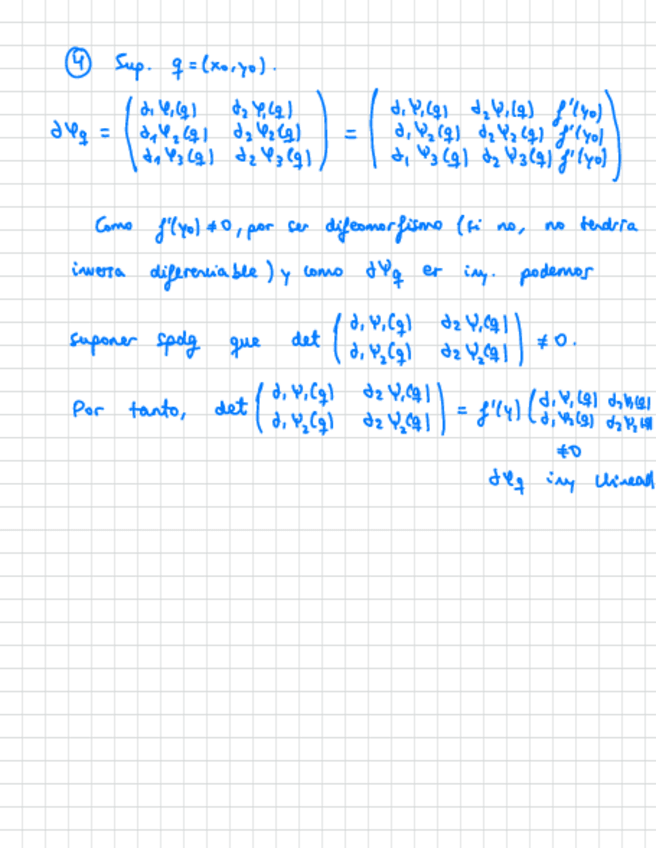 ④ Sup. q = (x₀, y₀).
dφq = ( ∂₁φ₁(q) ∂₂φ₁(q) ; ∂₁φ₂(q) ∂₂φ₂(q) ; ∂₁φ₃(q) ∂₂φ₃(q) ) = ( ∂₁ψ₁(q) ∂₂ψ₁(q) f'(y₀) ; ∂₁ψ₂(q) ∂₂ψ₂(q) f'(y₀) ; ∂₁ψ₃(q) ∂₂ψ₃(q) f'(y₀) )
Como f'(y₀) ≠ 0, por ser difeomorfismo (si no, no tendría
inversa diferenciable) y como dψq es iny. podemos
suponer spdg que det ( ∂₁ψ₁(q) ∂₂ψ₁(q) ; ∂₁ψ₂(q) ∂₂ψ₂(q) ) ≠ 0.
Por tanto, det ( ∂₁ψ₁(q) ∂₂ψ₁(q) ; ∂₁ψ₂(q) ∂₂ψ₂(q) ) = f'(y) ( ∂₁ψ₁(q) ∂₂ψ₁(q) ; ∂₁ψ₂(q) ∂₂ψ₂(q)
≠0
dφq iny lineal